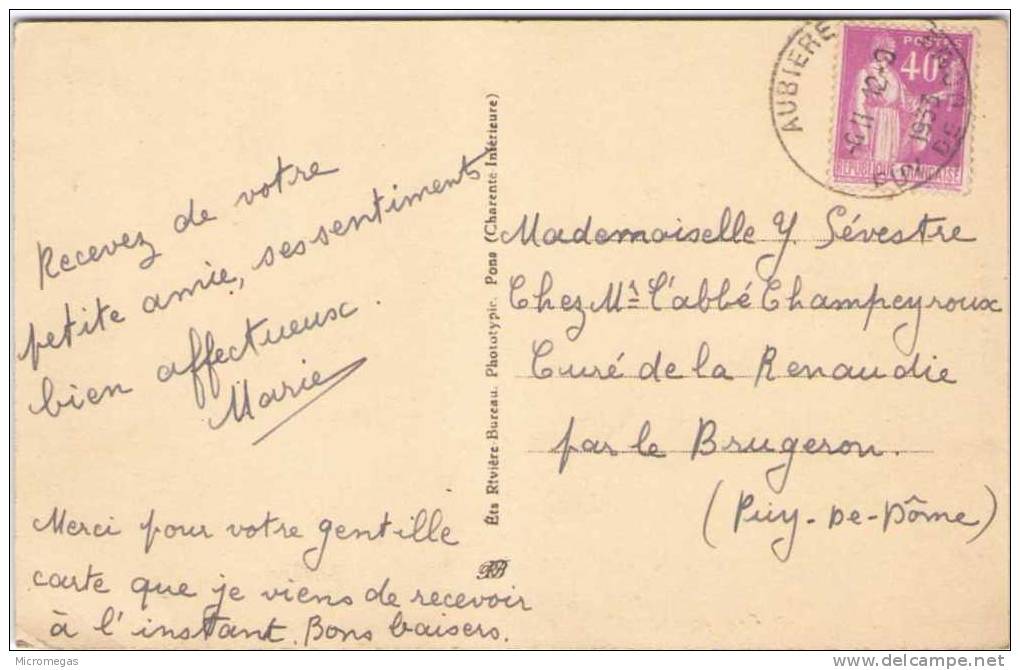 Recevez de votre
petite amie, ses sentiments
bien affectueux.
Marie
Merci pour votre gentille
carte que je viens de recevoir
à l'instant. Bons baisers.
Éts Rivière-Bureau. Phototypie. Pons (Charente-Inférieure)
AUBIERE
PUY DE DOME
12-9
-6 11
1933
POSTES
40
REPUBLIQUE FRANÇAISE
Mademoiselle Y Sévestre
Chez Mr L'abbé Champeyroux
Curé de la Renaudie
par le Brugeron.
(Puy-De-Dôme)
Micromegas
www.delcampe.net